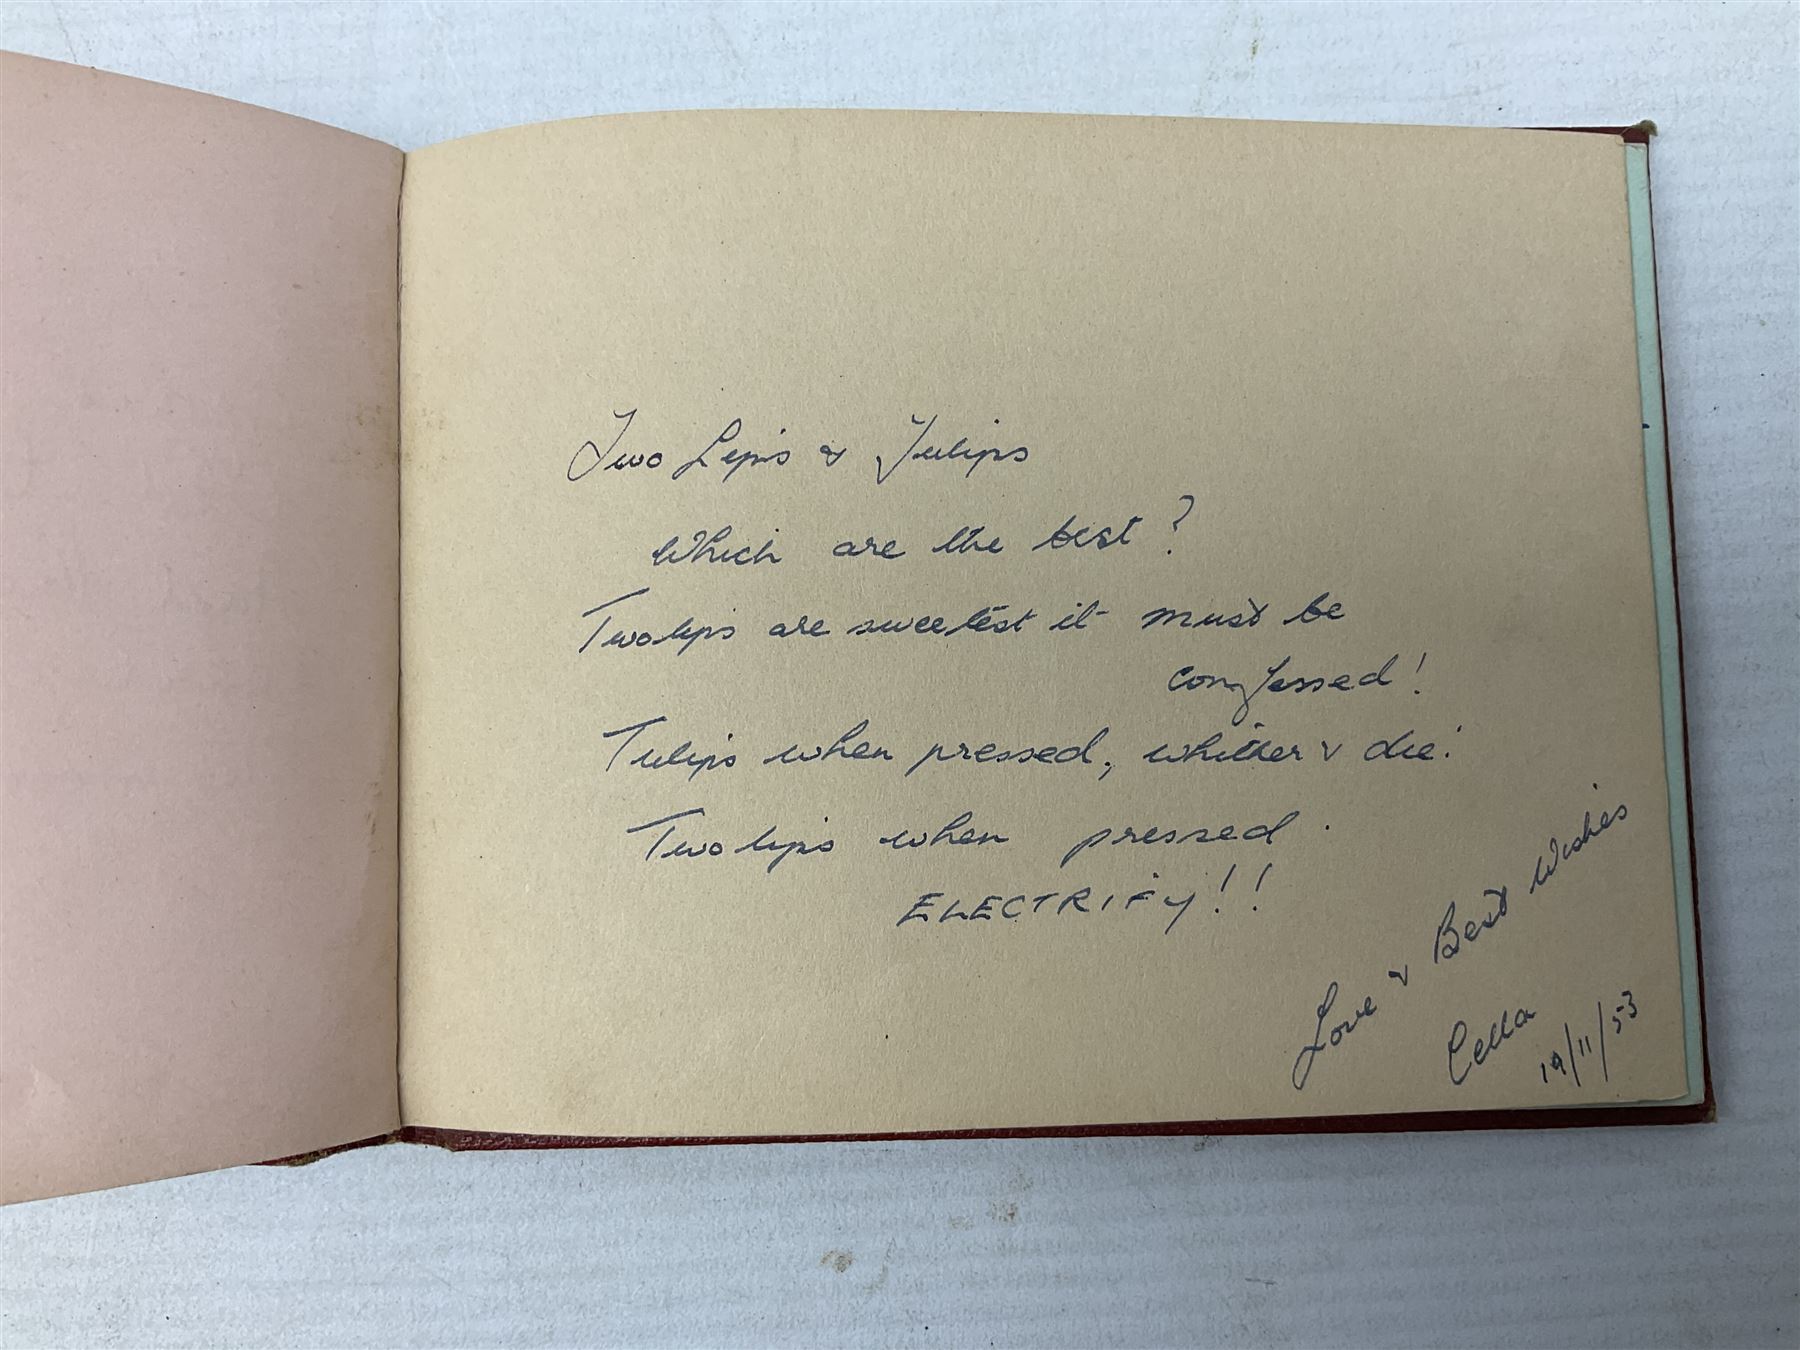 Two Lips & Tulips
Which are the best?
Two lips are sweetest it must be
confessed!
Tulips when pressed, whitter & die!
Two lips when pressed.
ELECTRIFY!!
Love & Best Wishes
Cella
19/11/53